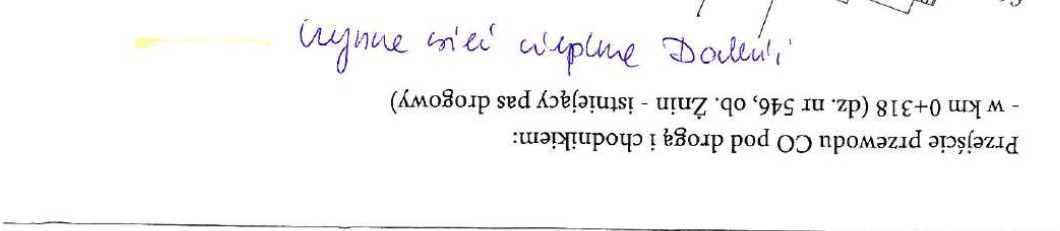 Przejście przewodu CO pod drogą i chodnikiem:
- w km 0+318 (dz. nr 546, ob. Żnin - istniejący pas drogowy)
czynne sieć cieplne